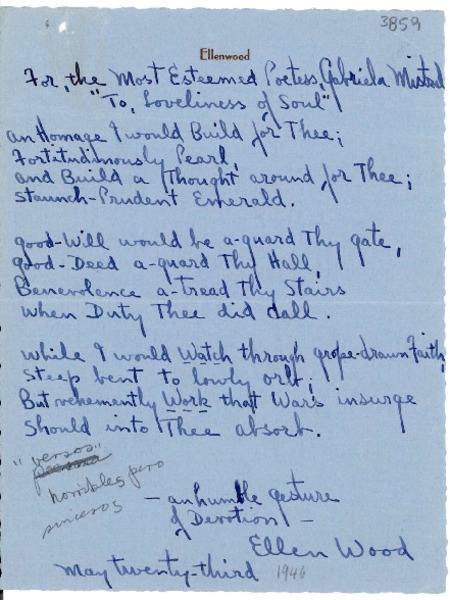 3859
Ellenwood
For, the Most Esteemed Poetess, Gabriela Mistral
"To, Loveliness of Soul"
an Homage I would Build for Thee;
Fortitudinously Pearl,
and Build a Thought around for Thee;
Staunch-Prudent Emerald.
good-Will would be a-guard Thy gate,
good-Deed a-guard Thy Hall,
Benevolence a-tread Thy Stairs
when Duty Thee did call.
while I would Watch through grope-drawn Faith,
Steep bent to lowly orb,
But vehemently Work that Wars insurge
Should into Thee absorb.
"versos"
horribles pero
sinceros
— an humble gesture
of Devotion —
Ellen Wood
May twenty-third 1946